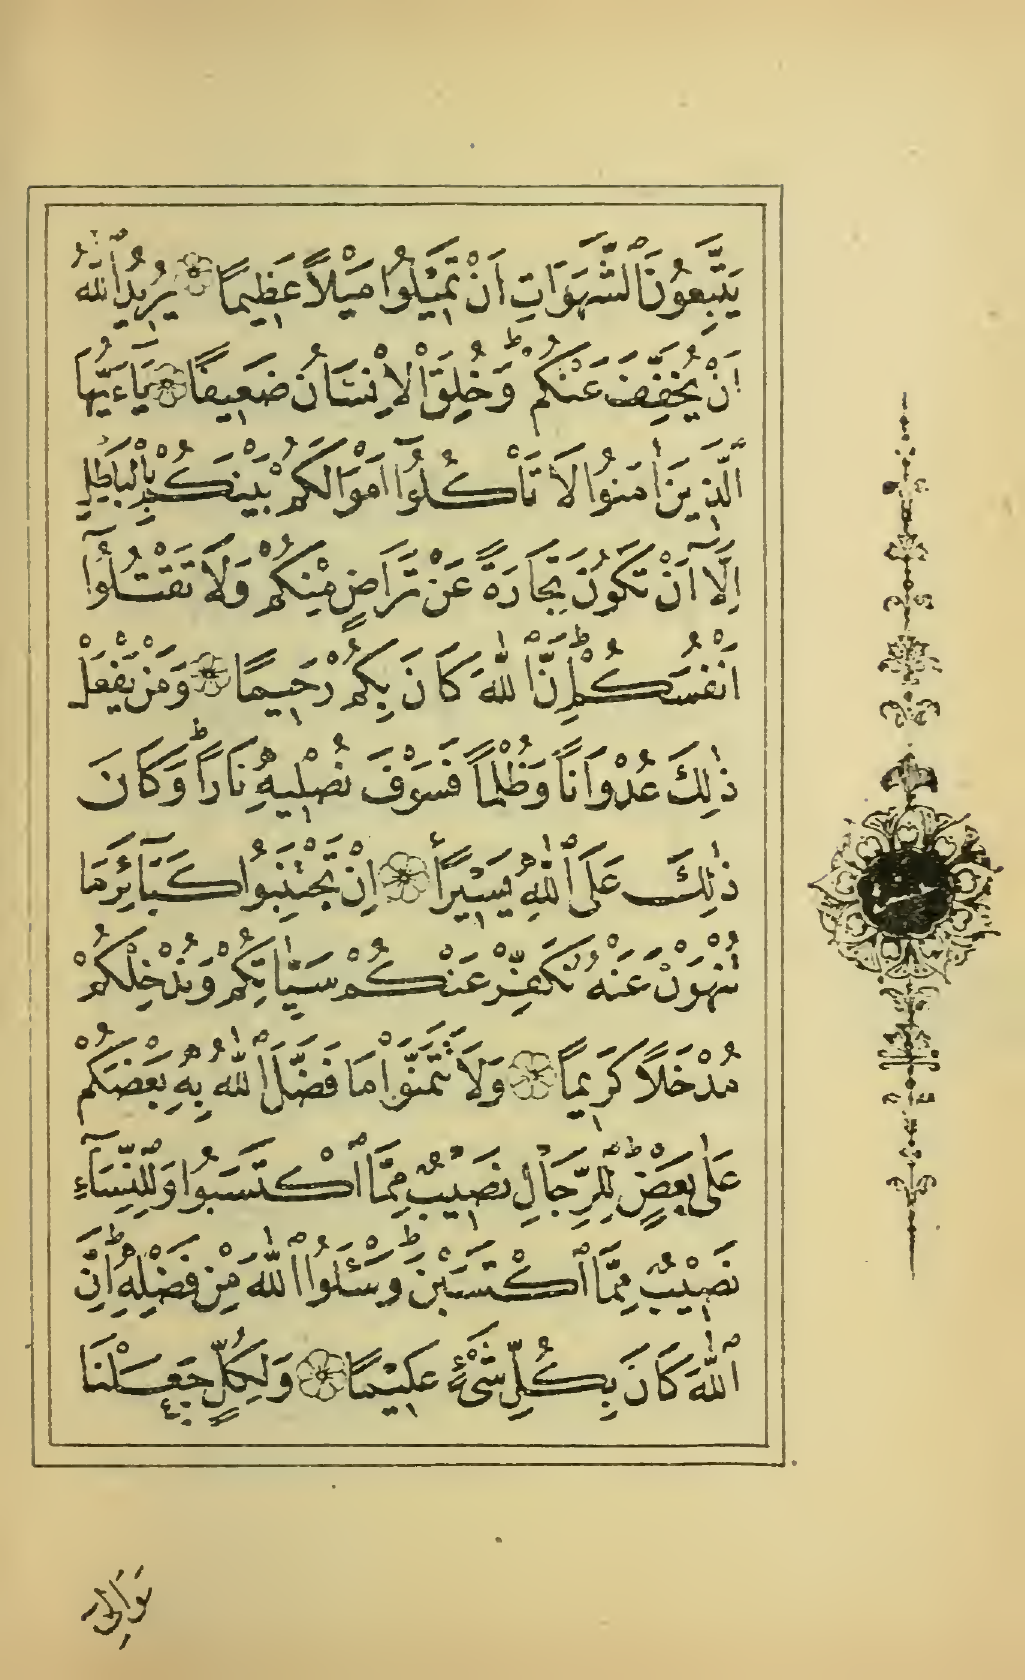 يَتَّبِعُونَ ٱلشَّهَوَاتِ اَنْ تَمِيْلُوا مَيْلاً عَظِيمًا ۝ يُرِيدُ ٱللّٰهُ
اَنْ يُخَفِّفَ عَنْكُمْ ۚ وَخُلِقَ ٱلْاِنْسَانُ ضَعِيفًا ۝ يَآءَيُّهَا
ٱلَّذِينَ اٰمَنُوا لَا تَاْكُلُوٓا اَمْوَالَكُمْ بَيْنَكُمْ بِالْبَاطِلِ
اِلَّآ اَنْ تَكُونَ تِجَارَةً عَنْ تَرَاضٍ مِنْكُمْ وَلَا تَقْتُلُوٓا
اَنْفُسَكُمْ ۗ اِنَّ ٱللّٰهَ كَانَ بِكُمْ رَحِيمًا ۝ وَمَنْ يَفْعَلْ
ذٰلِكَ عُدْوَانًا وَظُلْمًا فَسَوْفَ نُصْلِيهِ نَارًا ۗ وَكَانَ
ذٰلِكَ عَلَى ٱللّٰهِ يَسِيْرًا ۝ اِنْ تَجْتَنِبُوا كَبَآئِرَ مَا
تُنْهَوْنَ عَنْهُ نُكَفِّرْ عَنْكُمْ سَيِّاٰتِكُمْ وَنُدْخِلْكُمْ
مُدْخَلًا كَرِيمًا ۝ وَلَا تَتَمَنَّوْا مَا فَضَّلَ ٱللّٰهُ بِهِ بَعْضَكُمْ
عَلٰى بَعْضٍ ۗ لِلرِّجَالِ نَصِيْبٌ مِمَّا ٱكْتَسَبُوا وَلِلنِّسَآءِ
نَصِيْبٌ مِمَّا ٱكْتَسَبْنَ ۗ وَسْـَٔلُوا ٱللّٰهَ مِنْ فَضْلِهِ ۗ اِنَّ
ٱللّٰهَ كَانَ بِكُلِّ شَيْءٍ عَلِيْمًا ۝ وَلِكُلٍّ جَعَلْنَا
مَوَالِىَ